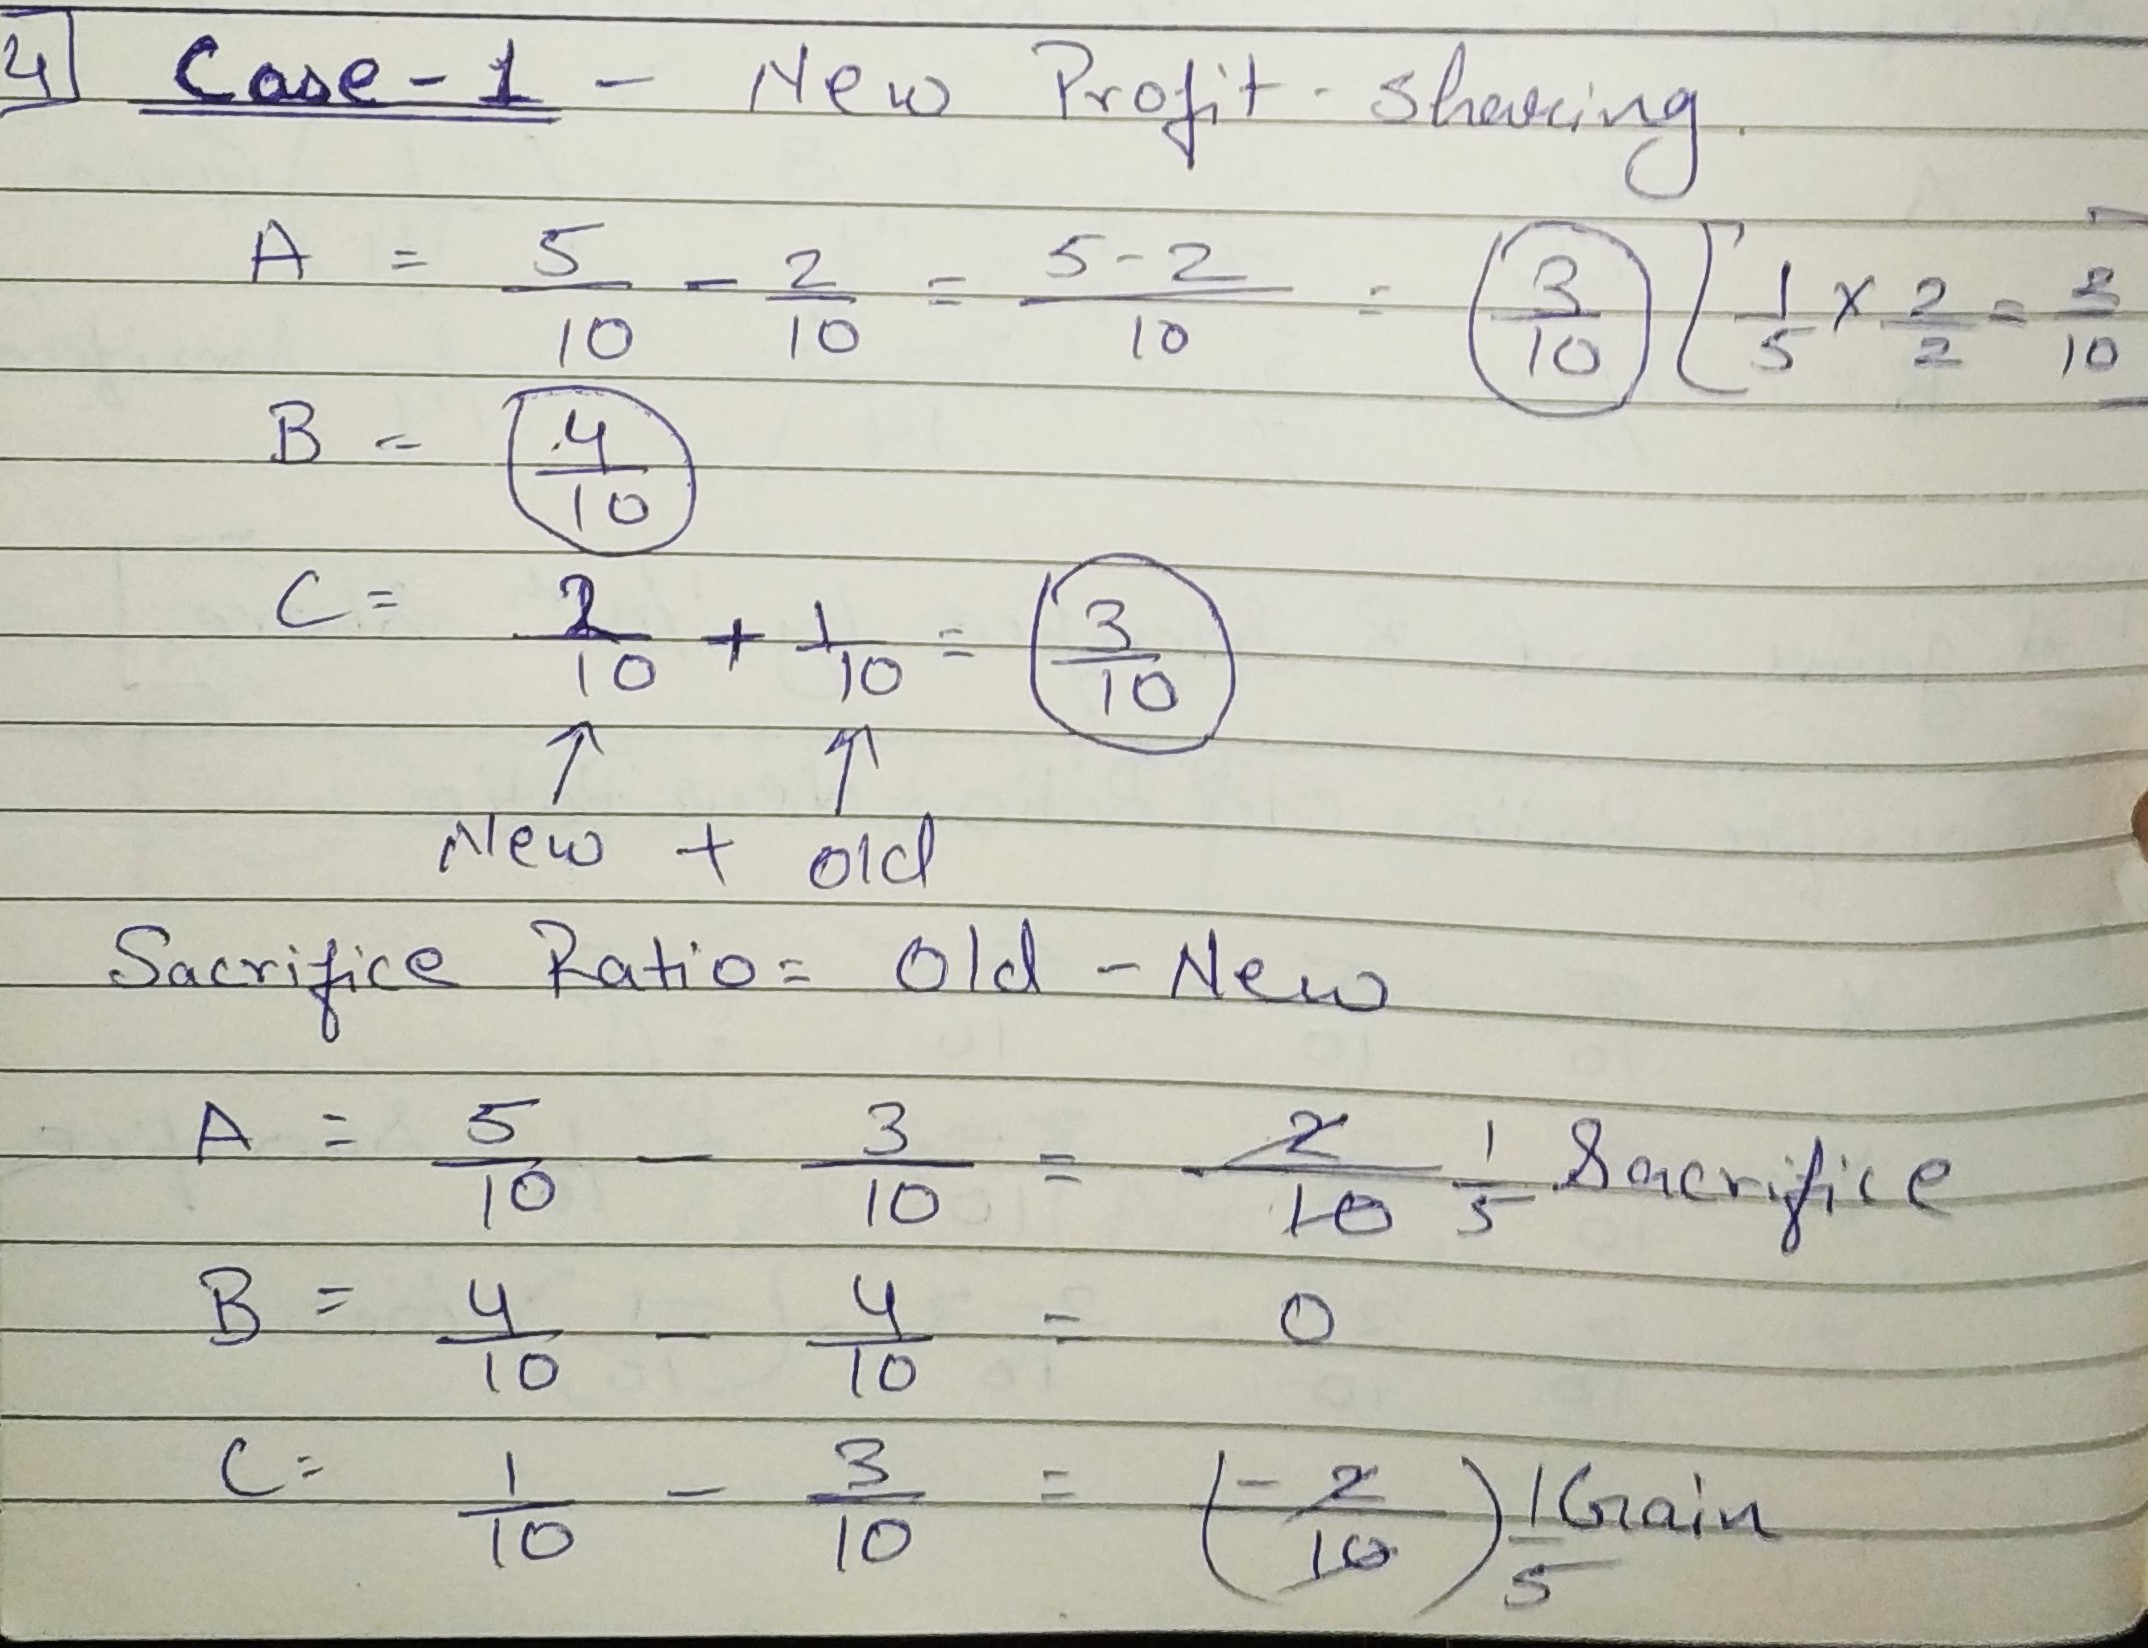 4] Case-1 - New Profit-Sharing
A = 5/10 - 2/10 = 5-2/10 = 3/10 [1/5 × 2/2 = 2/10]
B = 4/10
C = 2/10 + 1/10 = 3/10
↑ ↑
New + old
Sacrifice Ratio = Old - New
A = 5/10 - 3/10 = 2/10 1/5 Sacrifice
B = 4/10 - 4/10 = 0
C = 1/10 - 3/10 = (-2/10) 1/5 Gain